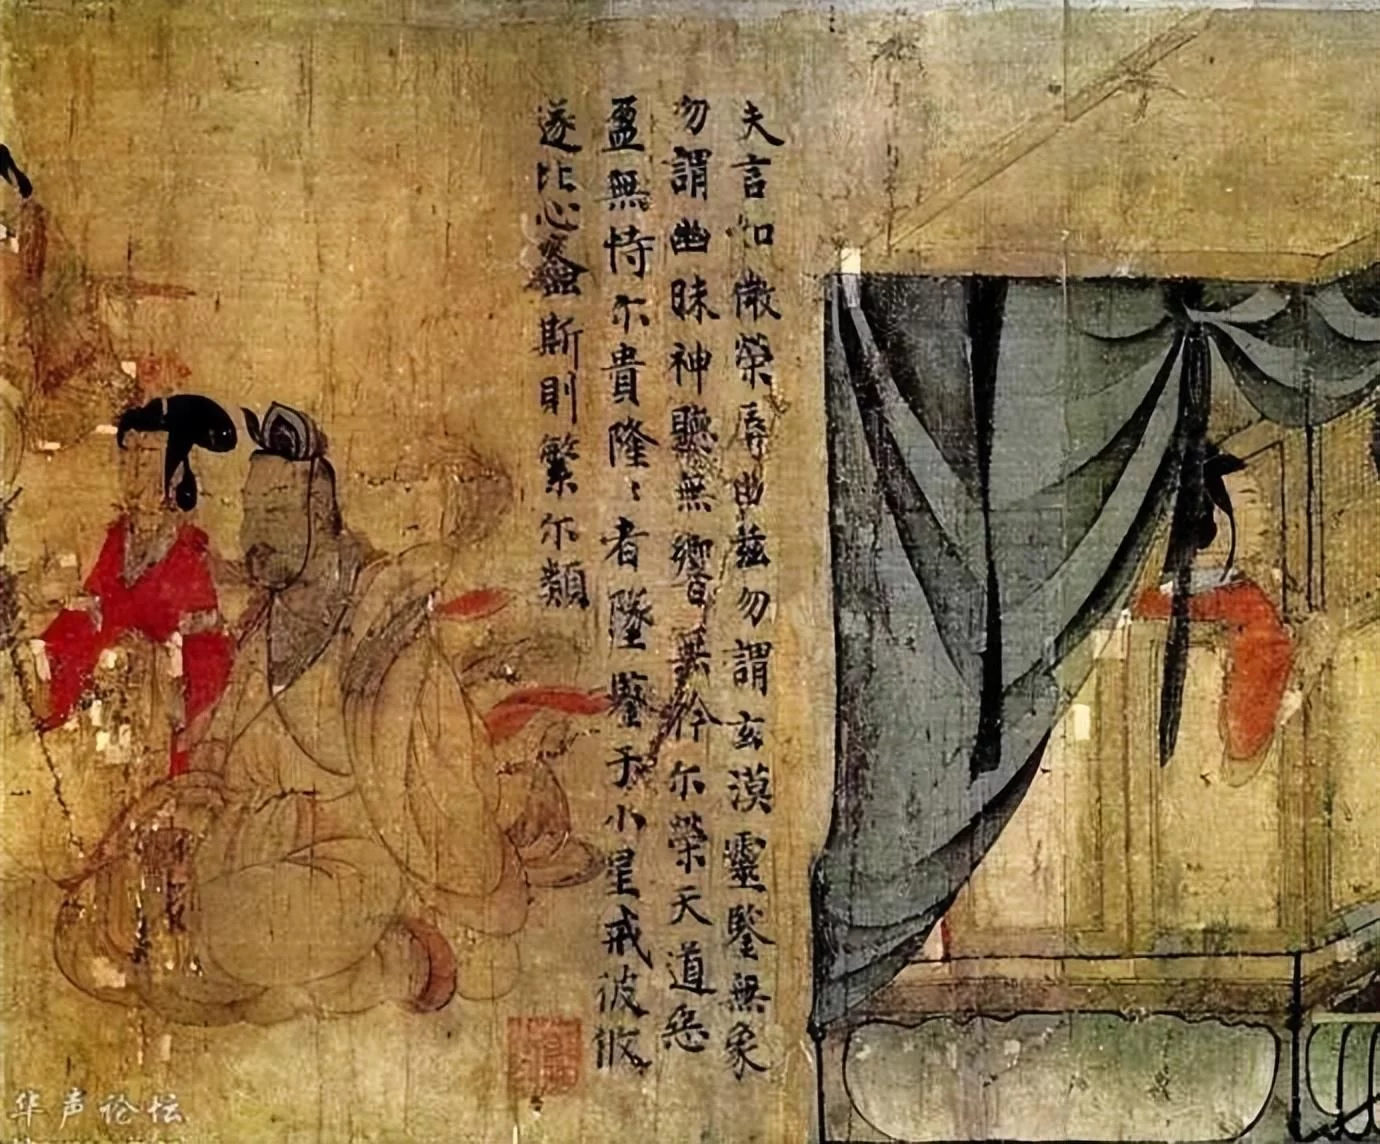 夫言如微榮辱由茲勿謂玄漠靈鑒無象
勿謂幽昧神聽無響無矜尔榮天道惡
盈無恃尔貴隆〻者墜鑒于小星戒彼攸
遂比心螽斯則繁尔類
华声论坛